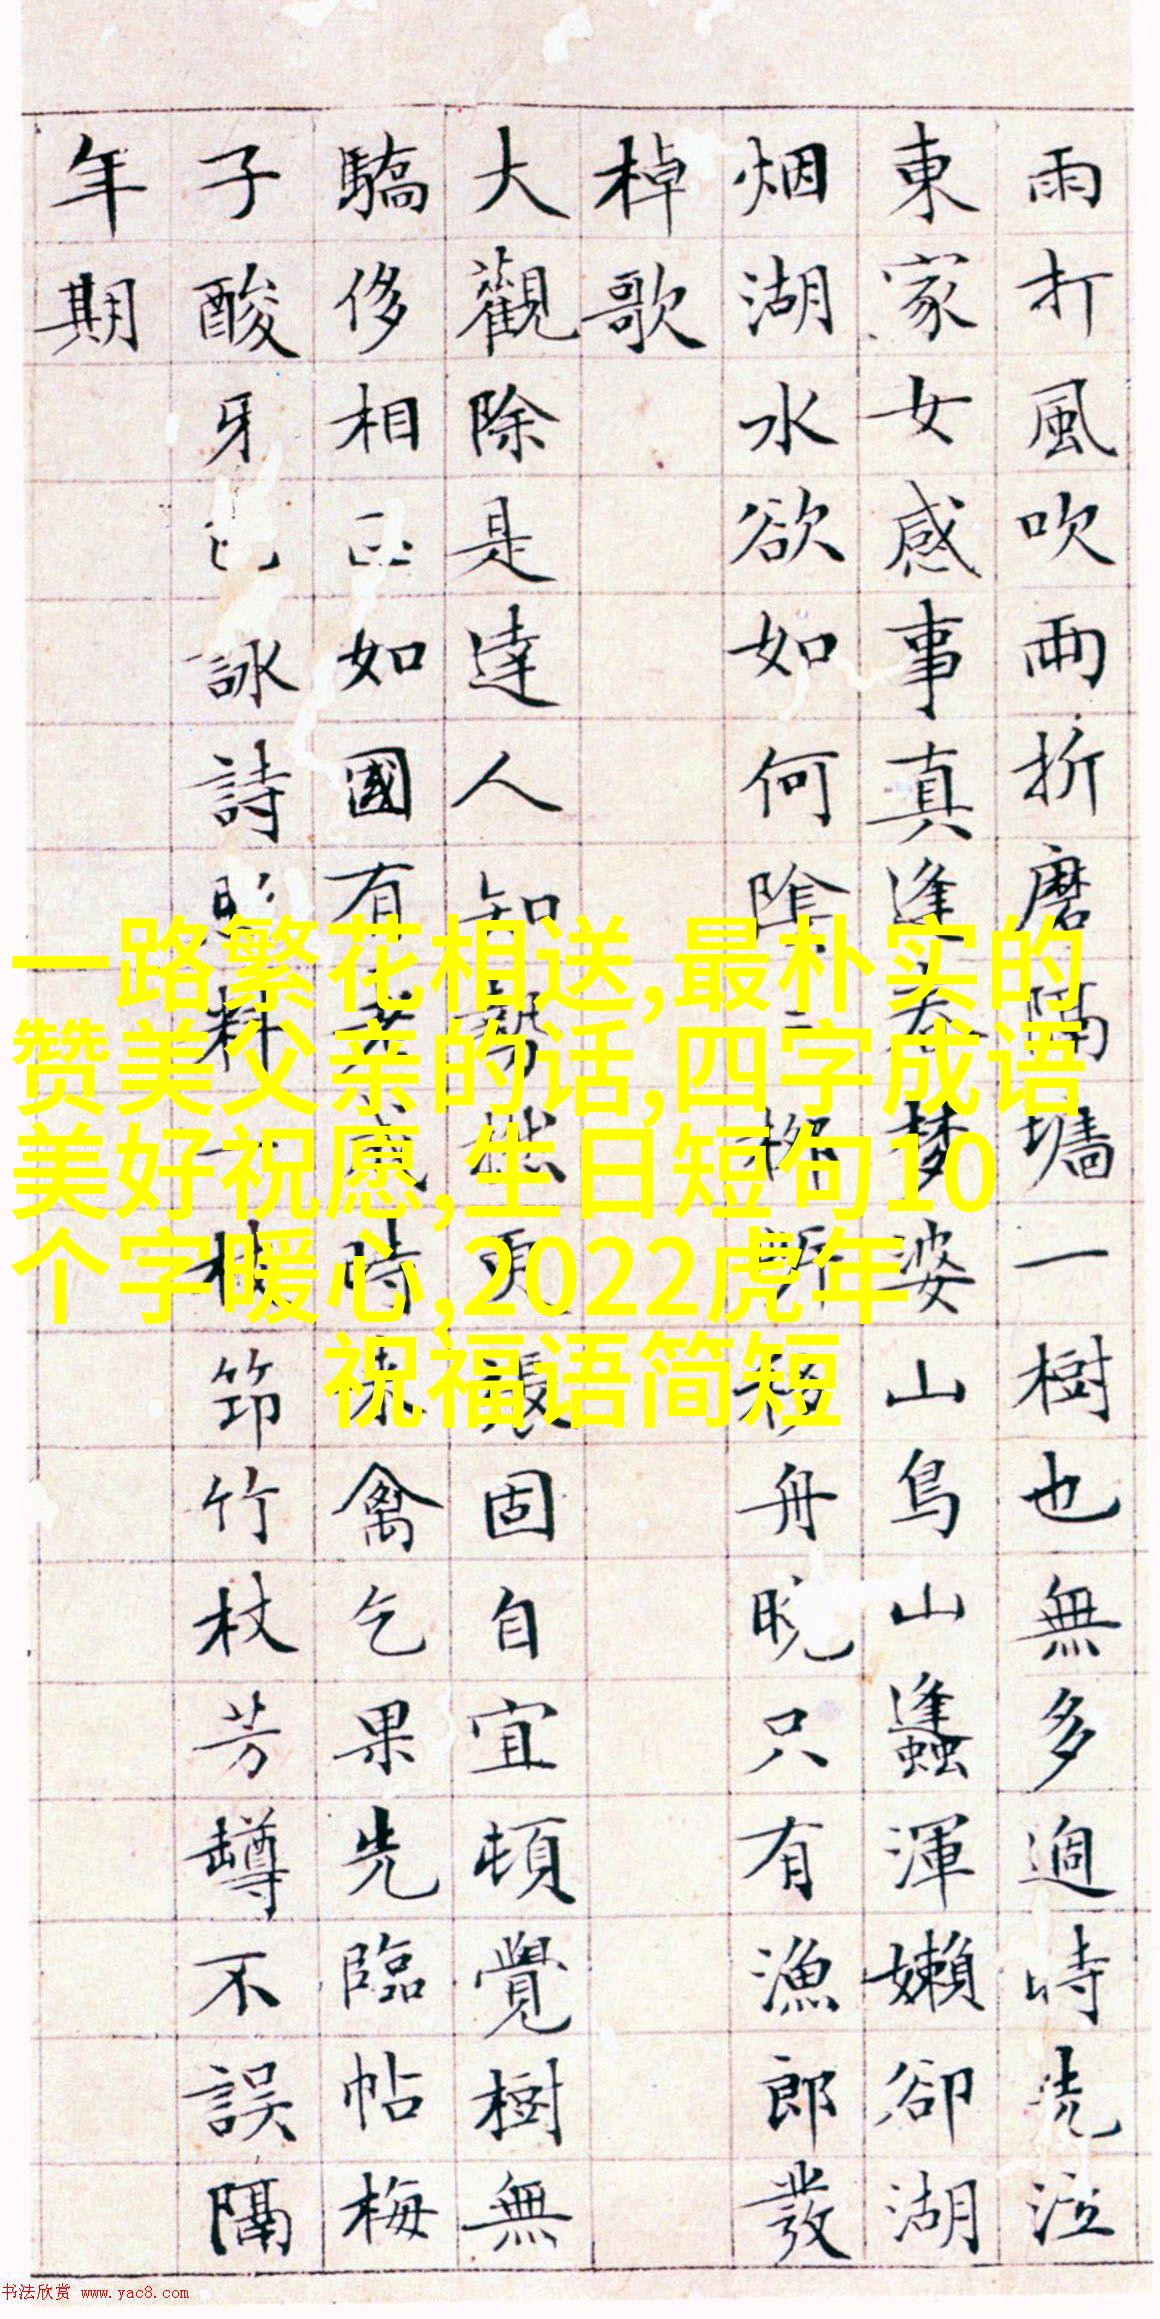 雨打風吹兩折磨隔墻一樹也無多過時泣
東家女感事真逢春夢婆山鳥山蠭渾嬾卻湖
烟湖水欲如何移舟晚只有漁郎發
棹歌
大觀除是達人知更張固自宜頓覺樹無
驕侈相如國有時來禽乞果先臨帖梅
子酸牙詠詩料一枝筇竹杖芳罇不誤隔
年期
一路繁花相送,最朴实的
赞美父亲的话,四字成语
美好祝愿,生日短句10
个字暖心,2022虎年
祝福语简短
书法欣赏 www.yac8.com